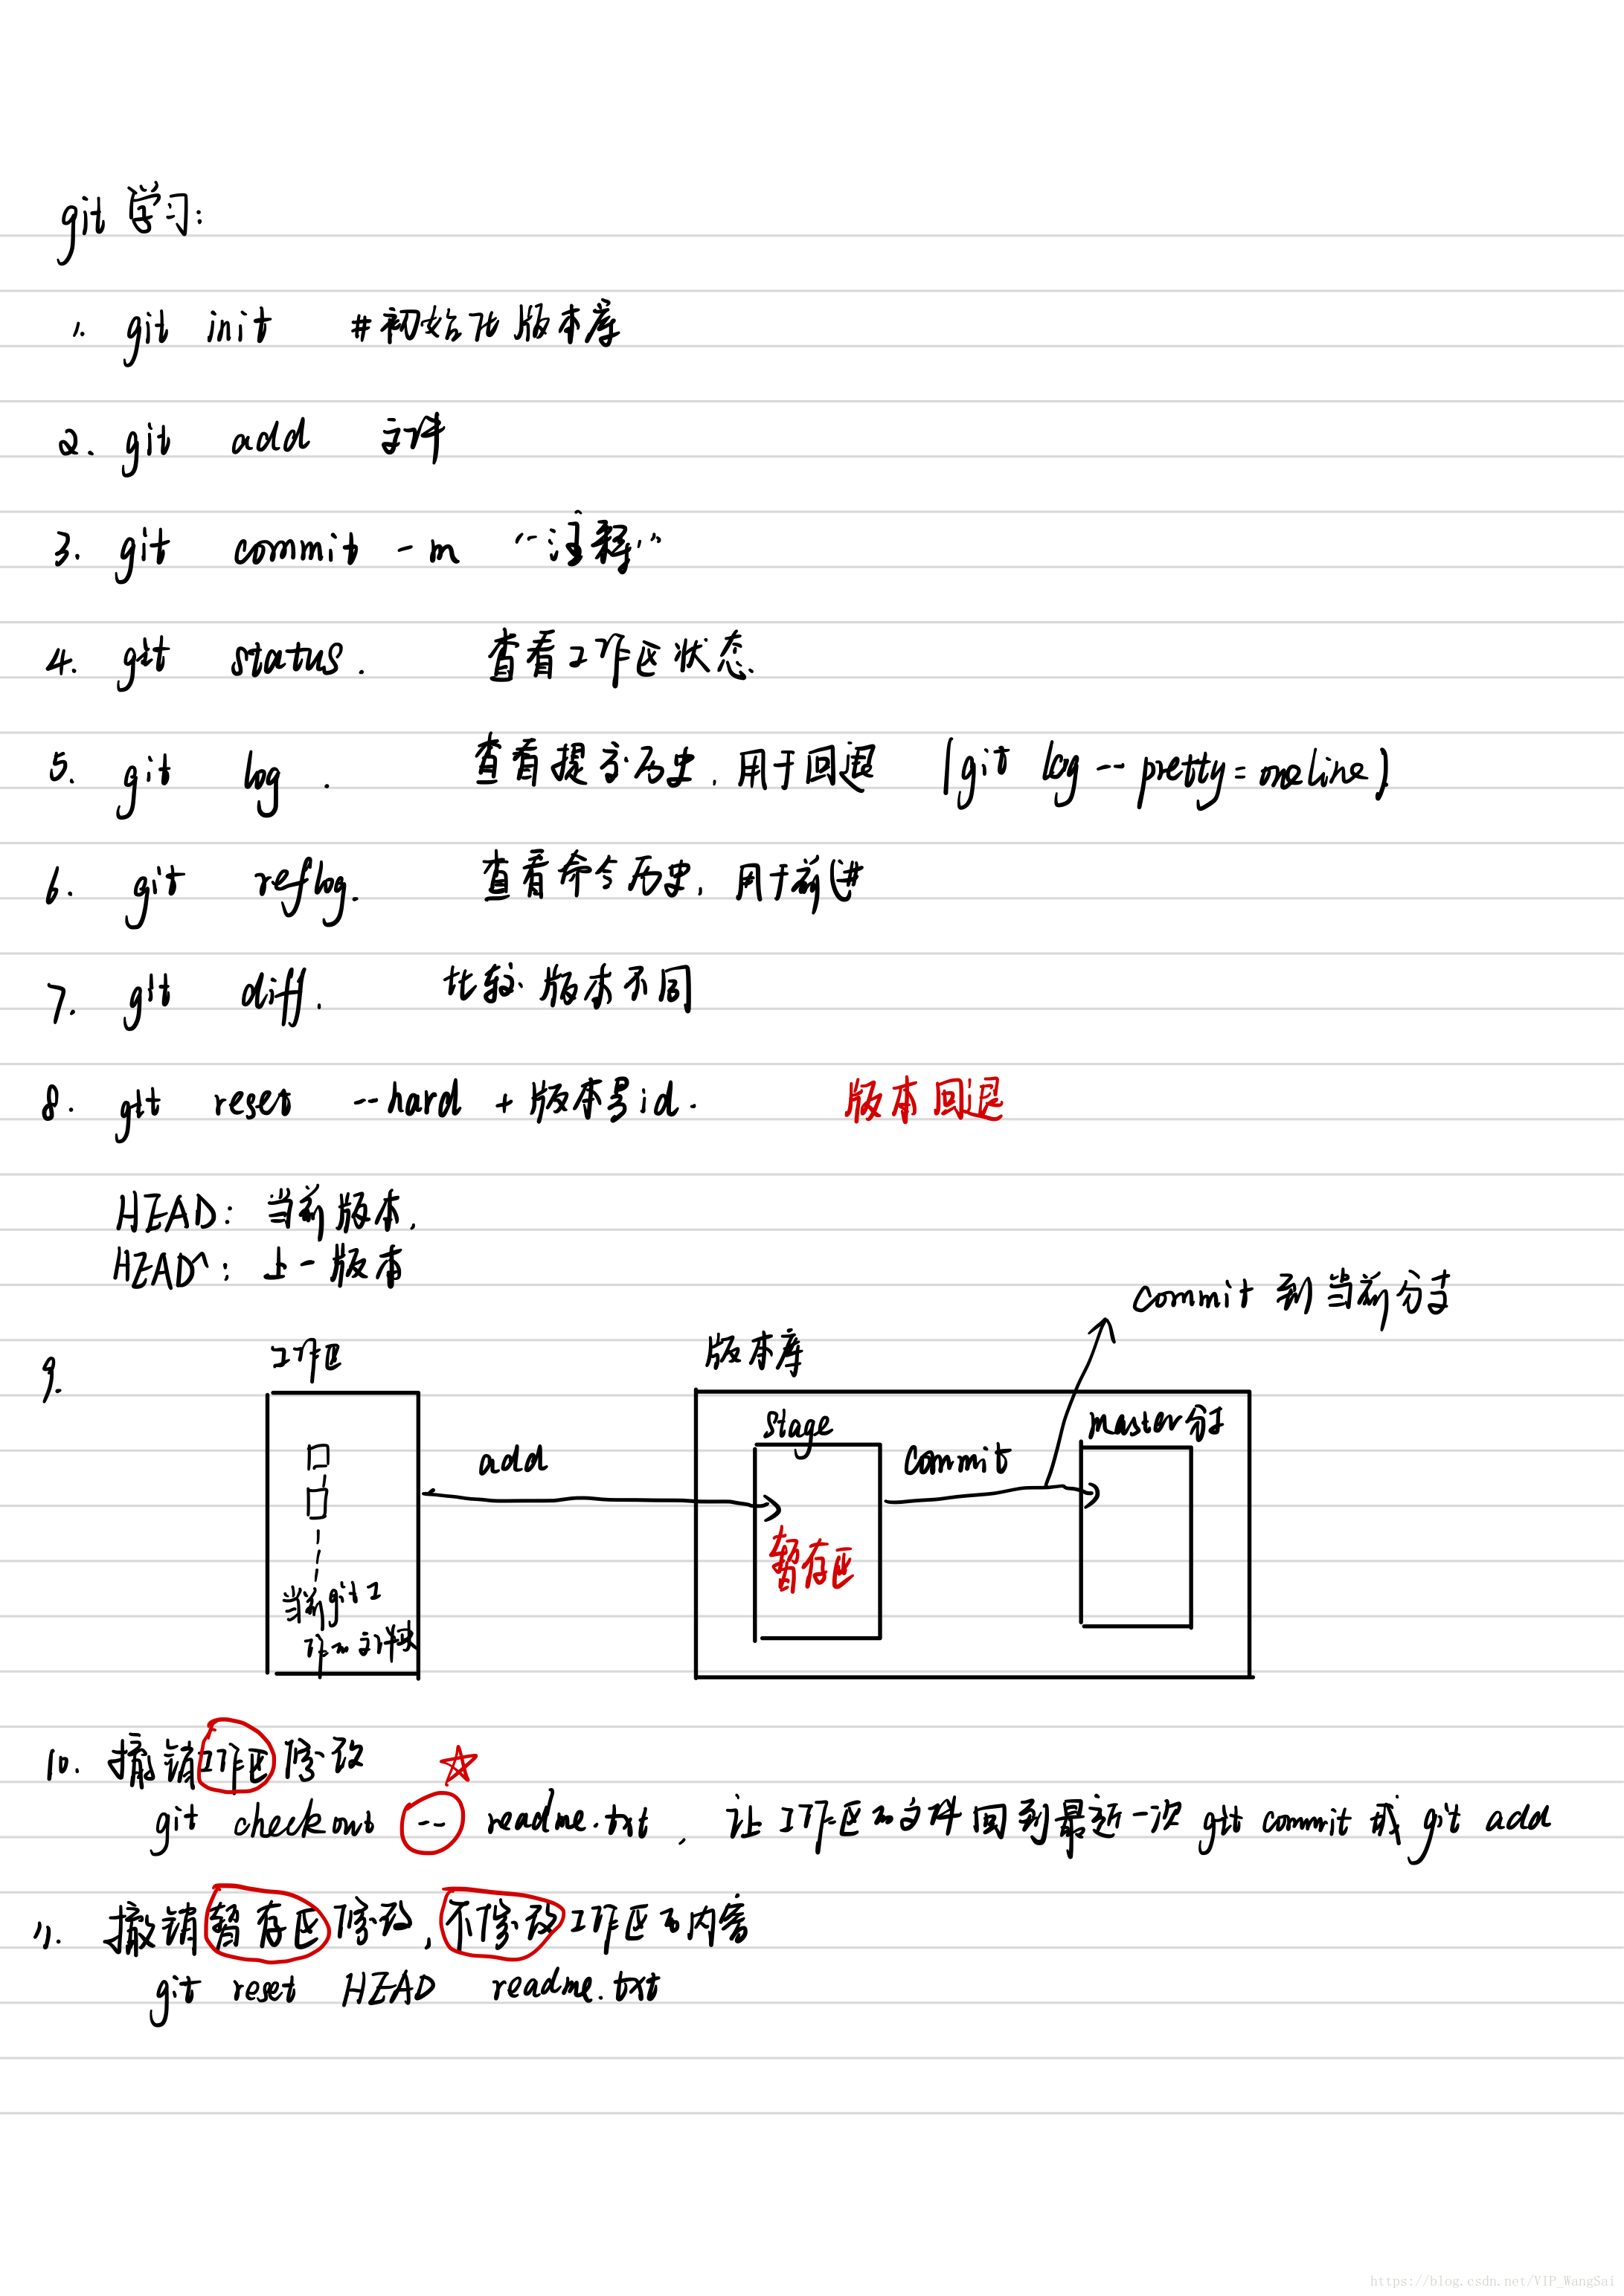 git 学习:
1. git init #初始化版本库
2. git add 文件
3. git commit -m "注释"
4. git status. 查看工作区状态.
5. git log. 查看提交历史,用于回退 (git log --pretty=oneline)
6. git reflog. 查看命令历史,用于前进
7. git diff. 比较版本不同
8. git reset --hard + 版本号id. 版本回退
HEAD: 当前版本.
HEAD^: 上一版本
commit 到当前分支
9. 工作区 版本库
stage master分支
add commit
暂存区
当前git工
作的文件夹
10. 撤销工作区修改
git checkout -- readme.txt, 让工作区的文件回到最近一次 git commit 或 git add
11. 撤销暂存区修改,不修改工作区的内容
git reset HEAD readme.txt
https://blog.csdn.net/VIP_WangSai